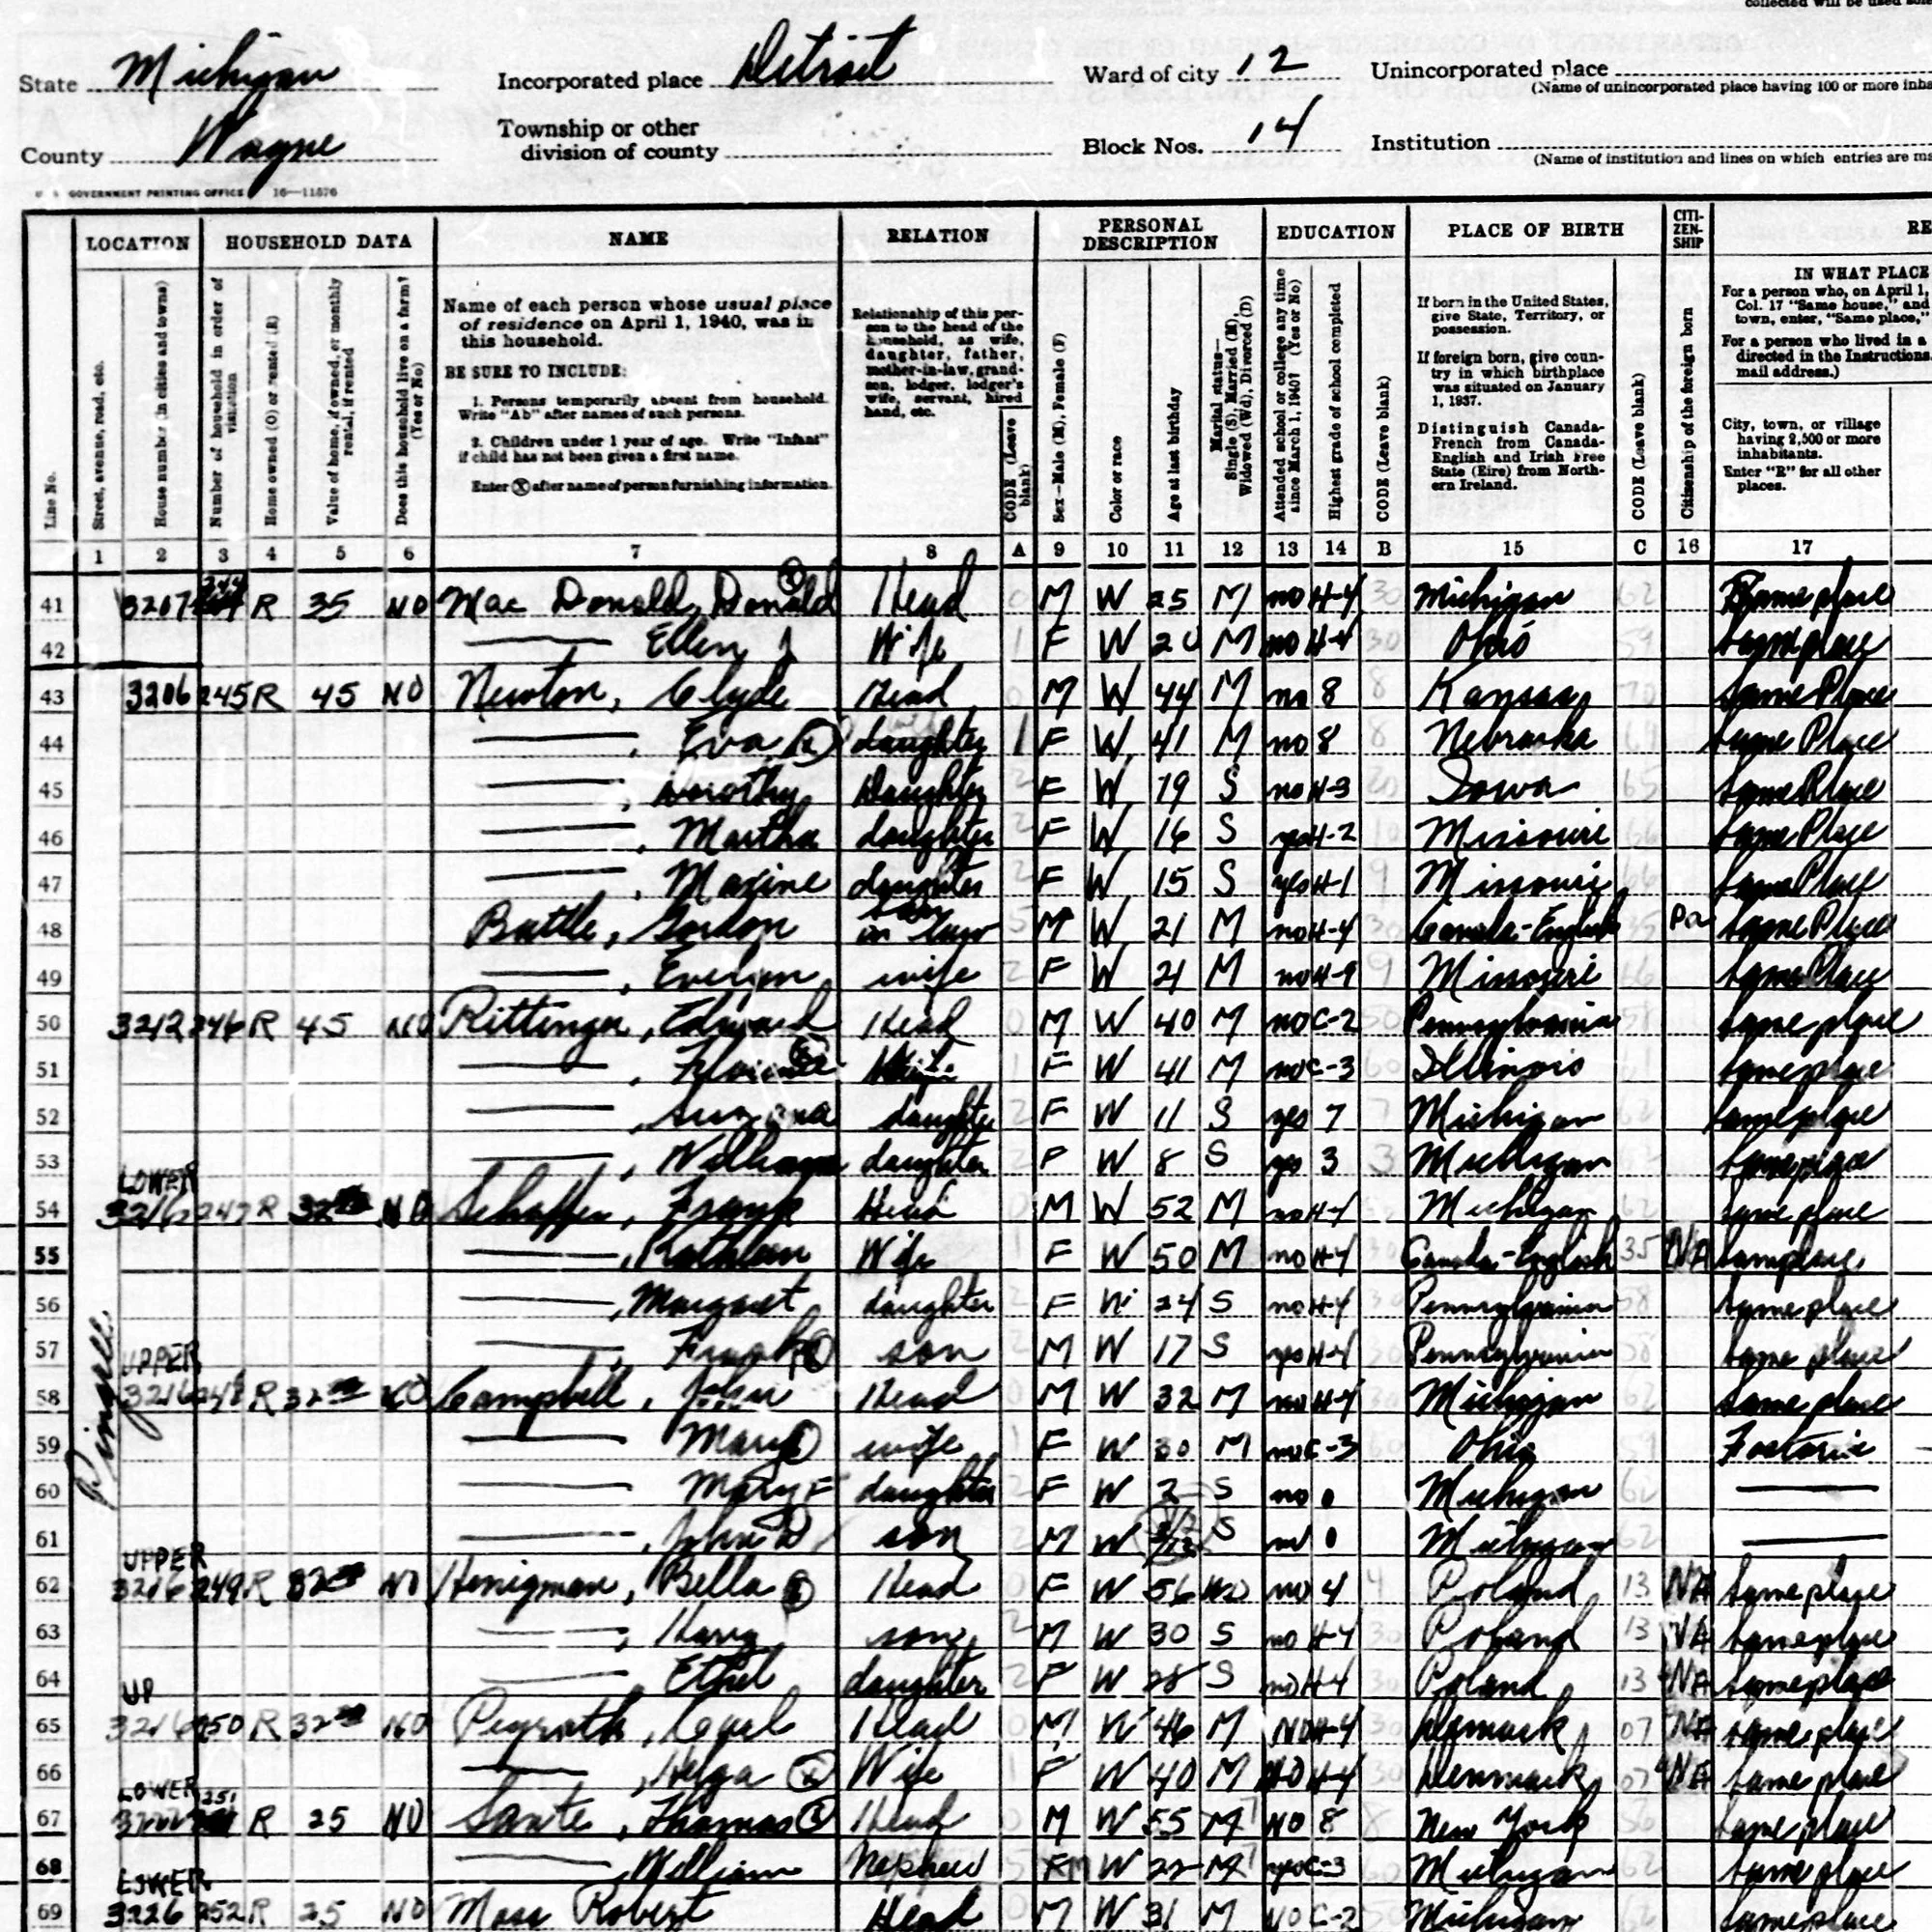 collected will be used sole
State Michigan Incorporated place Detroit Ward of city 12 Unincorporated place
(Name of unincorporated place having 100 or more inha
County Wayne Township or other division of county Block Nos. 14 Institution
(Name of institution and lines on which entries are ma
U. S. GOVERNMENT PRINTING OFFICE 16—11576
LOCATION HOUSEHOLD DATA NAME RELATION PERSONAL DESCRIPTION EDUCATION PLACE OF BIRTH CITI-ZEN-SHIP RE
Line No.
Street, avenue, road, etc.
House number (in cities and towns)
Number of household in order of visitation
Home owned (O) or rented (R)
Value of home, if owned, or monthly rental, if rented
Does this household live on a farm? (Yes or No)
Name of each person whose usual place
of residence on April 1, 1940, was in
this household.
BE SURE TO INCLUDE:
1. Persons temporarily absent from household.
Write "Ab" after names of such persons.
2. Children under 1 year of age. Write "Infant"
if child has not been given a first name.
Enter Ⓧ after name of person furnishing information.
Relationship of this per-
son to the head of the
household, as wife,
daughter, father,
mother-in-law, grand-
son, lodger, lodger's
wife, servant, hired
hand, etc.
CODE (Leave blank)
Sex—Male (M), Female (F)
Color or race
Age at last birthday
Marital status—Single (S), Married (M), Widowed (Wd), Divorced (D)
Attended school or college any time since March 1, 1940? (Yes or No)
Highest grade of school completed
CODE (Leave blank)
If born in the United States,
give State, Territory, or
possession.
If foreign born, give coun-
try in which birthplace
was situated on January
1, 1937.
Distinguish Canada-
French from Canada-
English and Irish Free
State (Eire) from North-
ern Ireland.
CODE (Leave blank)
Citizenship of the foreign born
IN WHAT PLACE
For a person who, on April 1,
Col. 17 "Same house," and
town, enter, "Same place,"
For a person who lived in a
directed in the Instructions.
mail address.)
City, town, or village
having 2,500 or more
inhabitants.
Enter "R" for all other
places.
1 2 3 4 5 6 7 8 A 9 10 11 12 13 14 B 15 C 16 17
41 3207 244 R 35 NO Mac Donald, Donald Head 0 M W 25 M no H-4 30 Michigan 62 Same place
42 Ellen J Wife 1 F W M no H-4 30 Ohio 59 Same place
43 3206 245 R 45 NO Newton, Clyde Head 0 M W 44 M no 8 8 Kansas 70 Same Place
44 Eva daughter 1 F W 41 M no 8 8 Nebraska 69 Same Place
45 Dorothy Daughter 2 F W 19 S no H-3 20 Iowa 65 Same Place
46 Martha daughter 2 F W 16 S yes H-2 10 Missouri 66 Same Place
47 Maxine daughter 2 F W 15 S yes H-1 9 Missouri 66 Same Place
48 Gordon son in law 5 M W 21 M no H-4 30 Canada-English 35 Pa Same Place
49 Evelyn wife 2 F W 21 M no 9 Missouri 66 Same Place
50 3212 246 R 45 NO Rittinger, Edward Head 0 M W 40 M no C-2 50 Pennsylvania 58 Same place
51 Wife 1 F W 41 M no C-3 60 Illinois 61 Same place
52 daughter 2 F W 11 S yes 7 7 Michigan 62 Same place
53 daughter 2 F W 8 S yes 3 3 Michigan 62 Same place
LOWER
54 3216 247 R 32 NO Frank Head 0 M W 52 M no H-4 Michigan 62 Same place
55 Kathleen Wife 1 F W 50 M no H-4 30 Canada-English 35 NA Same place
56 Margaret daughter 2 F W 24 S no H-4 30 Pennsylvania 58 Same place
57 Frank son 2 M W 17 S yes H-4 30 Pennsylvania 58 Same place
Pingree
UPPER
58 3216 248 R 32 NO Campbell, John Head 0 M W 32 M no H-4 30 Michigan 62 Same place
59 Mary wife 1 F W 30 M no C-3 60 Ohio 59 Fostoria
60 Mary F daughter 2 F W 2 S no 0 Michigan 62
61 John D son 2 M W S no 0 Michigan 62
UPPER
62 3216 249 R 32 NO Honigman, Bella Head 0 F W 56 WD no 4 4 Poland 13 NA Same place
63 Harry son 2 M W 30 S no H-4 30 Poland 13 NA Same place
64 Ethel daughter 2 F W 28 S no H-4 30 Poland 13 NA Same place
UP
65 3216 250 R 32 NO Head 0 M W 46 M NO H-4 30 Denmark 07 NA Same place
66 Helga Ⓧ Wife 1 F W 40 M NO H-4 30 Denmark 07 NA Same place
LOWER
67 251 R 25 NO Sante, Thomas Head 0 M W 55 M 7 NO 8 8 New York 56 Same place
68 William Nephew 5 M W 22 M 7 yes C-3 60 Michigan 62 Same place
LOWER
69 3226 252 R 25 NO Moss Robert Head 0 M W 31 M NO C-2 50 Michigan 62 Same place